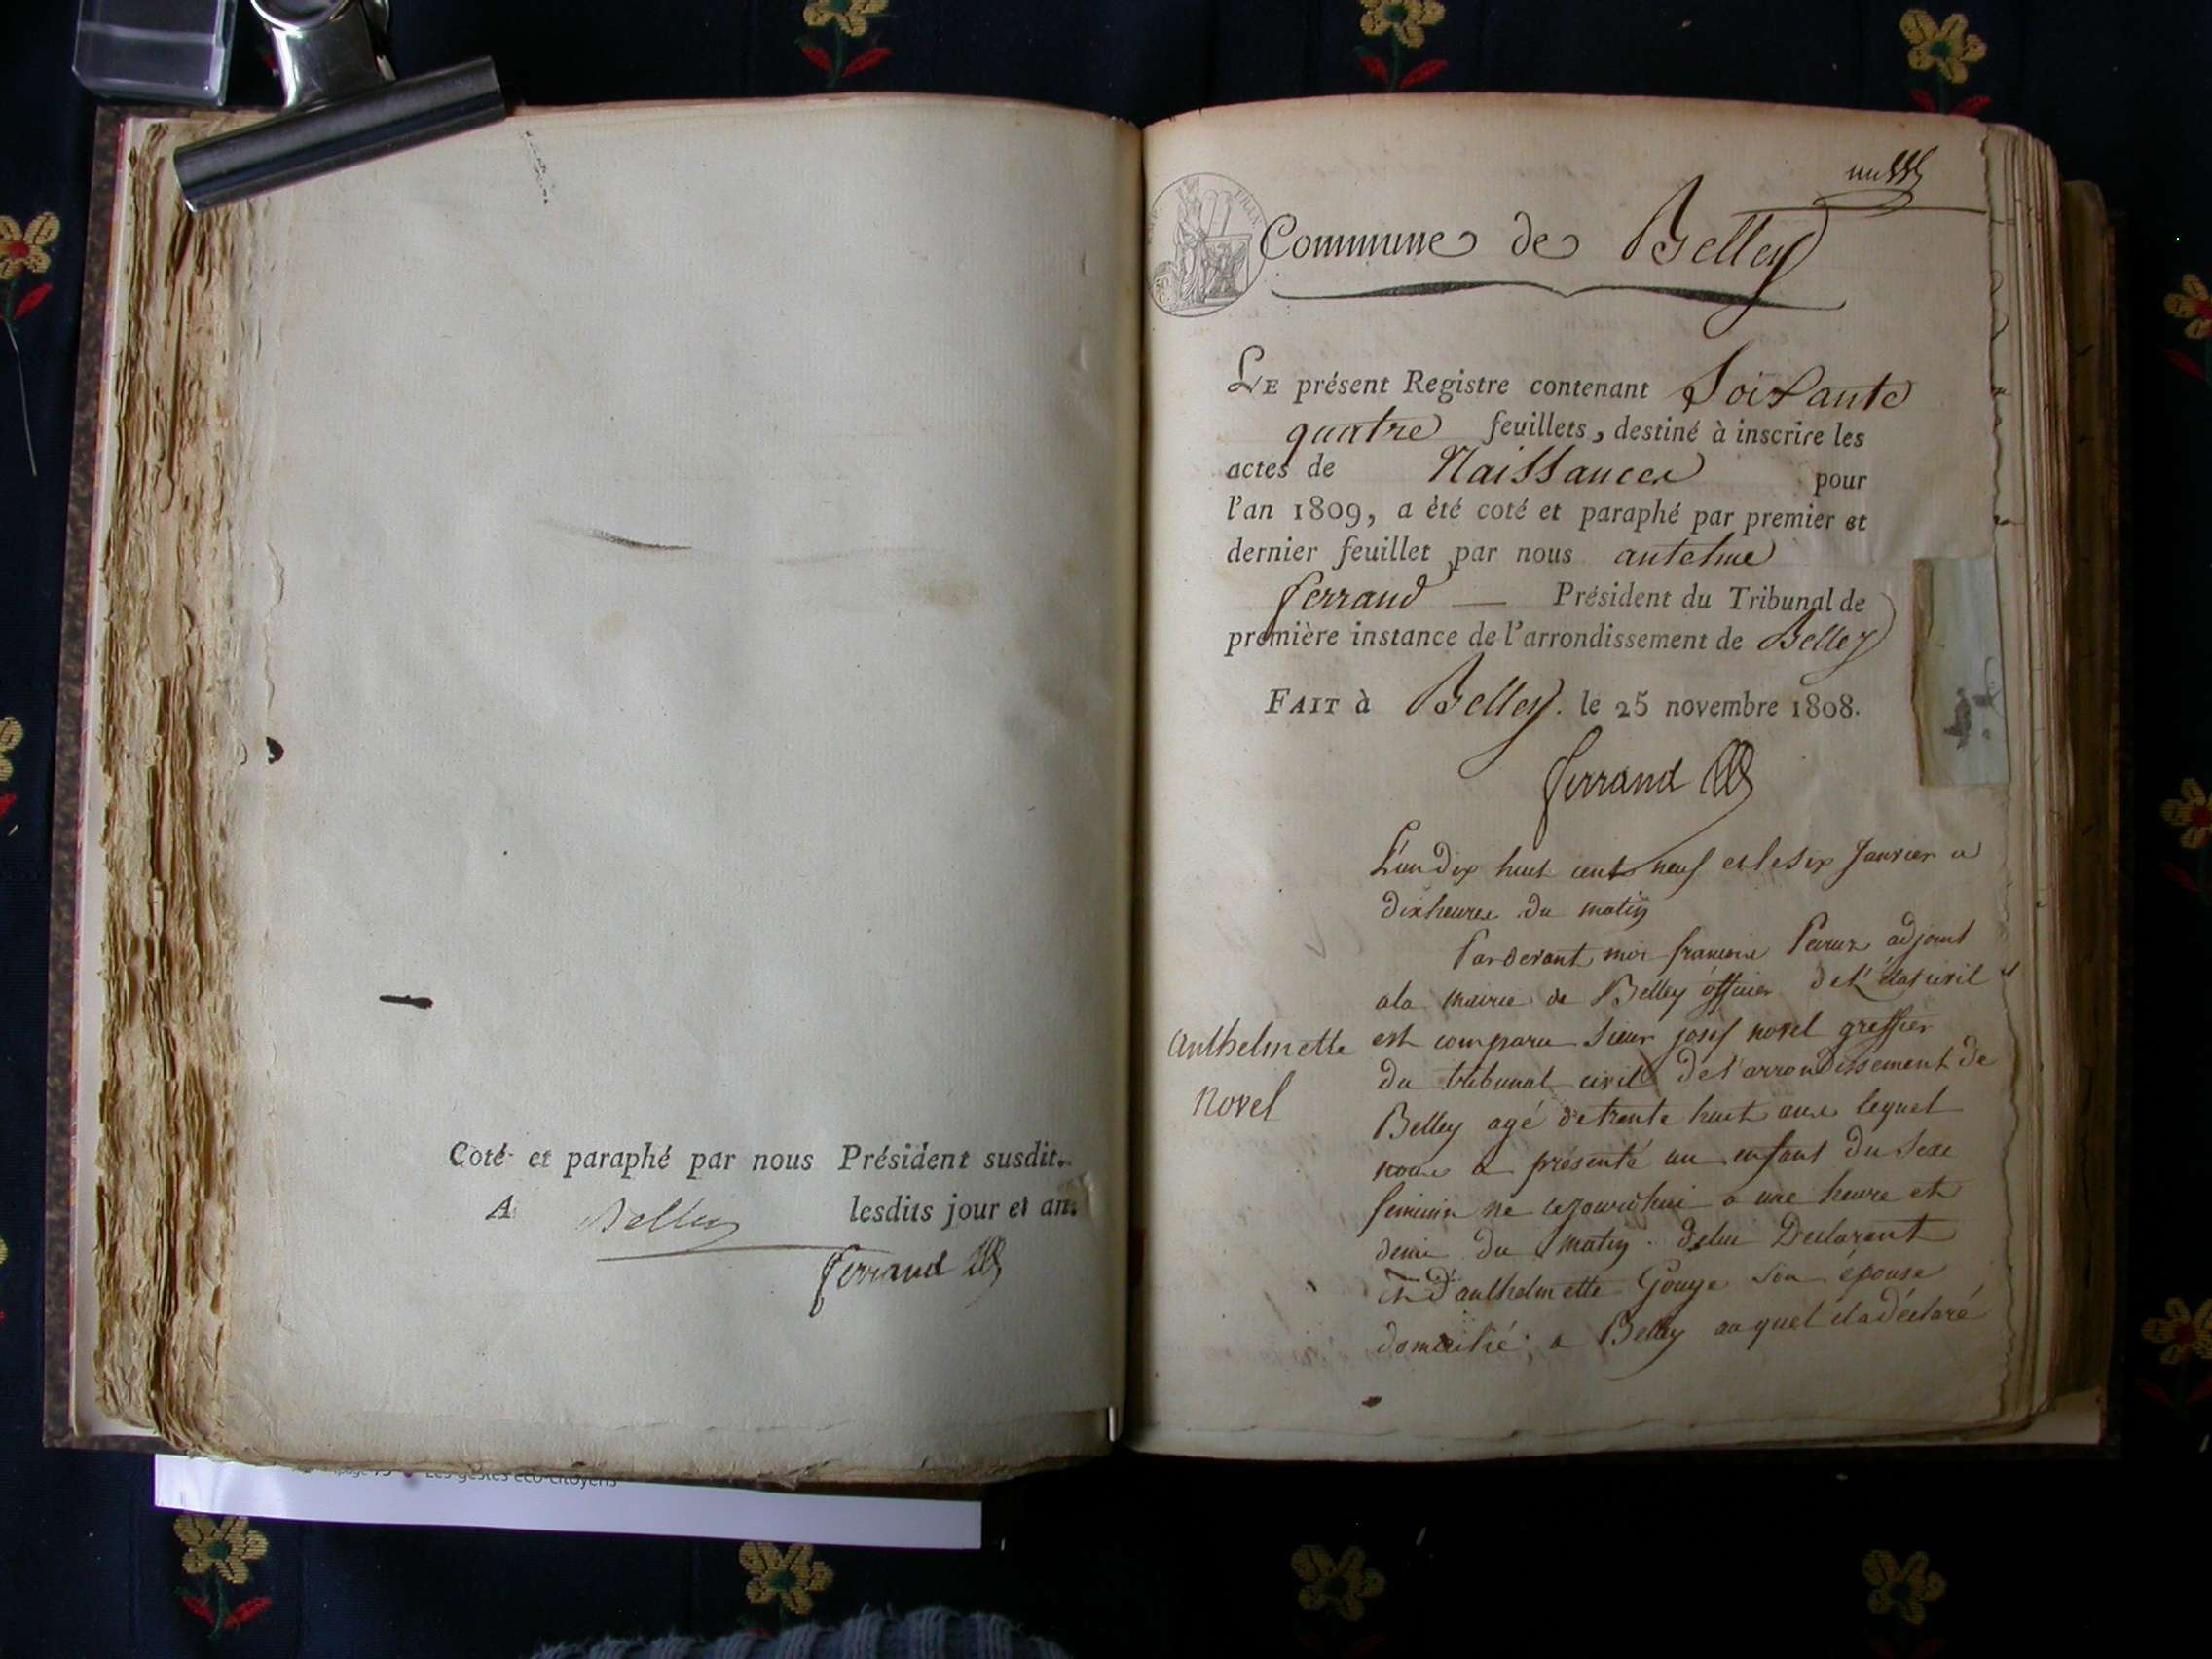 Coté et paraphé par nous Président susdit.
A Belley lesdits jour et an.
ferrand
page 75 Les gestes éco-citoyens
FRAN
50
C
Commune de Belley
LE présent Registre contenant Soixante
quatre feuillets, destiné à inscrire les
actes de Naissances pour
l'an 1809, a été coté et paraphé par premier et
dernier feuillet par nous antelme
ferrand — Président du Tribunal de
première instance de l'arrondissement de Belley
FAIT à Belley. le 25 novembre 1808.
ferrand
L'an dix huit cent neuf et le six Janvier a
dix heures du matin
Pardevant moi adjoint
a la mairie de Belley officier de l'état civil
Anthelmette
novel
est comparu Sieur josef novel greffier
du tribunal civil de l'arrondissement de
Belley agé de trente huit ans lequel
nous a présenté un enfant du Sexe
feminin né cejourdhui a une heure et
demi du matin. de lui Déclarant
Et D'anthelmette Gouge son épouse
domicilié; a Belley auquel il a déclaré